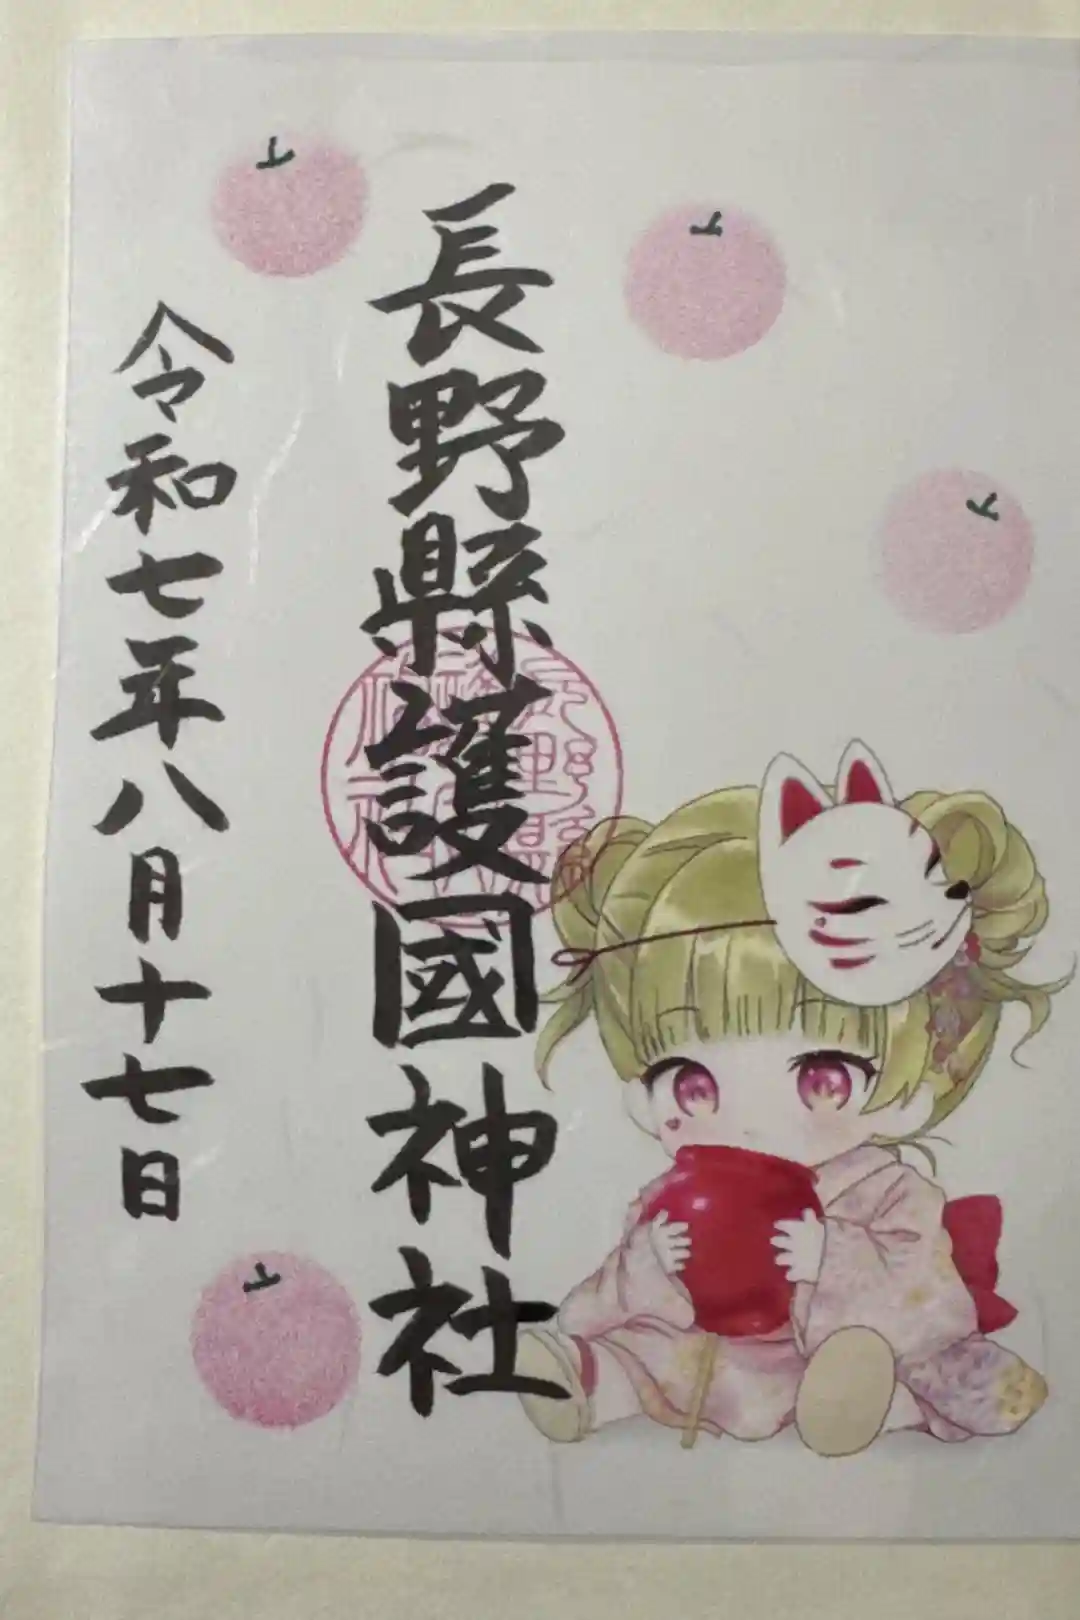 長野縣護國神社
令和七年八月十七日